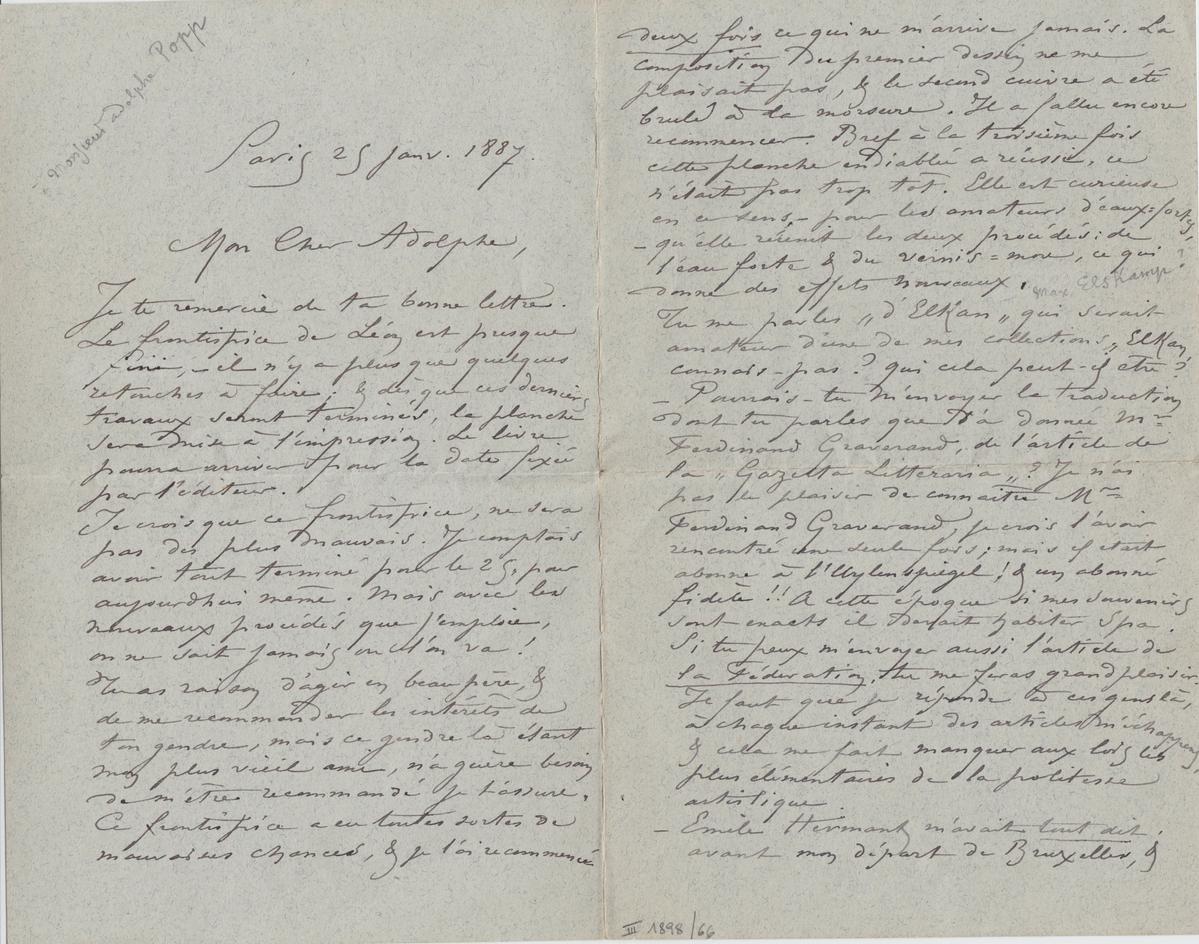 Monsieur Adolphe Popp
Paris 25 Janv. 1887.
Mon Cher Adolphe,
Je te remercie de ta bonne lettre.
Le frontispice de Léon est presque
fini, – il n'y a plus que quelques
retouches à faire ; & dès que ces derniers
travaux seront terminés, la planche
sera mise à l'impression. Le livre
pourra arriver pour la date fixée
par l'éditeur.
Je crois que ce frontispice, ne sera
pas des plus mauvais. Je comptais
avoir tout terminé pour le 25, pour
aujourdhui même. Mais avec les
nouveaux procédés que j'emploie,
on ne sait jamais où l'on va !
Tu as raison d'agir en beau père, &
de me recommander les intérêts de
ton gendre, mais ce gendre là étant
mon plus vieil ami, n'a guère besoin
de m'être recommandé je t'assure.
Ce frontispice a eu toutes sortes de
mauvaises chances, & je l'ai recommencé
deux fois ce qui ne m'arrive jamais. La
composition du premier dessin ne me
plaisait pas, & le second cuivre a été
brulé à la morsure. Il a fallu encore
recommencer. Bref à la troisième fois
cette planche endiablée a réussie, ce
n'était pas trop tôt. Elle est curieuse
en ce sens, – pour les amateurs d'eaux=fortes,
– qu'elle réunit les deux procédés : de
l'eau forte & du vernis = mou, ce qui
donne des effets nouveaux.
Max Elskamp ?
Tu me parles „ d'Elkan „ qui serait
amateur d'une de mes collections „ Elkan,
connais-pas ? qui cela peut-il être ?
– Pourrais-tu m'envoyer la traduction
dont tu parles que t'a donnée Mr
Ferdinand Graverand, de l'article de
la „ Gazetta Litteraria „ ? Je n'ai
pas le plaisir de connaitre Mr
Ferdinand Graverand, je crois l'avoir
rencontré une seule fois ; mais il était
abonné à l'Uylenspiegel ! & un abonné
fidèle !! A cette époque si mes souvenirs
sont exacts il devait habiter Spa.
Si tu peux m'envoyer aussi l'article de
la Féderation, tu me feras grand plaisir.
Il faut que je réponde à ces gens là,
à chaque instant des articles m'échappent,
& cela me fait manquer aux lois les
plus élémentaires de la politesse
artistique
– Emile Hermant m'avait tout dit,
avant mon départ de Bruxelles, &
III 1898/66